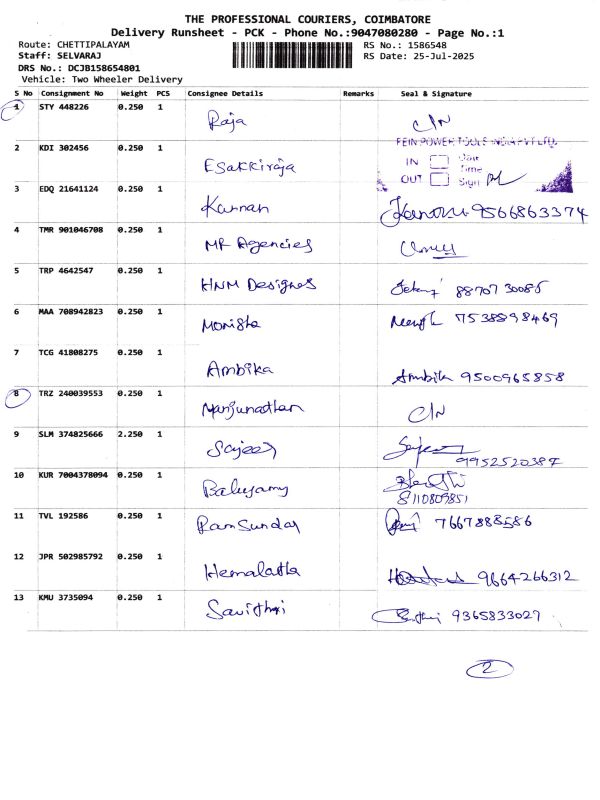 THE PROFESSIONAL COURIERS, COIMBATORE
Delivery Runsheet - PCK - Phone No.:9047080280 - Page No.:1
Route: CHETTIPALAYAM RS No.: 1586548
Staff: SELVARAJ RS Date: 25-Jul-2025
DRS No.: DCJB158654801
Vehicle: Two Wheeler Delivery
S No Consignment No Weight PCS Consignee Details Remarks Seal & Signature
1 STY 448226 0.250 1 Raja C/N
2 KDI 302456 0.250 1 Esakkiraja
FEIN POWER TOOLS INDIA PVT LTD.
IN Date
Time
OUT Sign
3 EDQ 21641124 0.250 1 Kannan 9566863374
4 TMR 901046708 0.250 1 MR Agencies
5 TRP 4642547 0.250 1 HNM Designes 88707 30085
6 MAA 708942823 0.250 1 Monisha 7538898469
7 TCG 41808275 0.250 1 Ambika Ambika 9500965858
8 TRZ 240039553 0.250 1 Manjunathan C/N
9 SLM 374825666 2.250 1 Sajeev 9952520387
10 KUR 7004378094 0.250 1 Balusamy 8110809851
11 TVL 192586 0.250 1 Ramsundar 7667888586
12 JPR 502985792 0.250 1 Hemalatha 9664266312
13 KMU 3735094 0.250 1 Savithri 9365833027
2